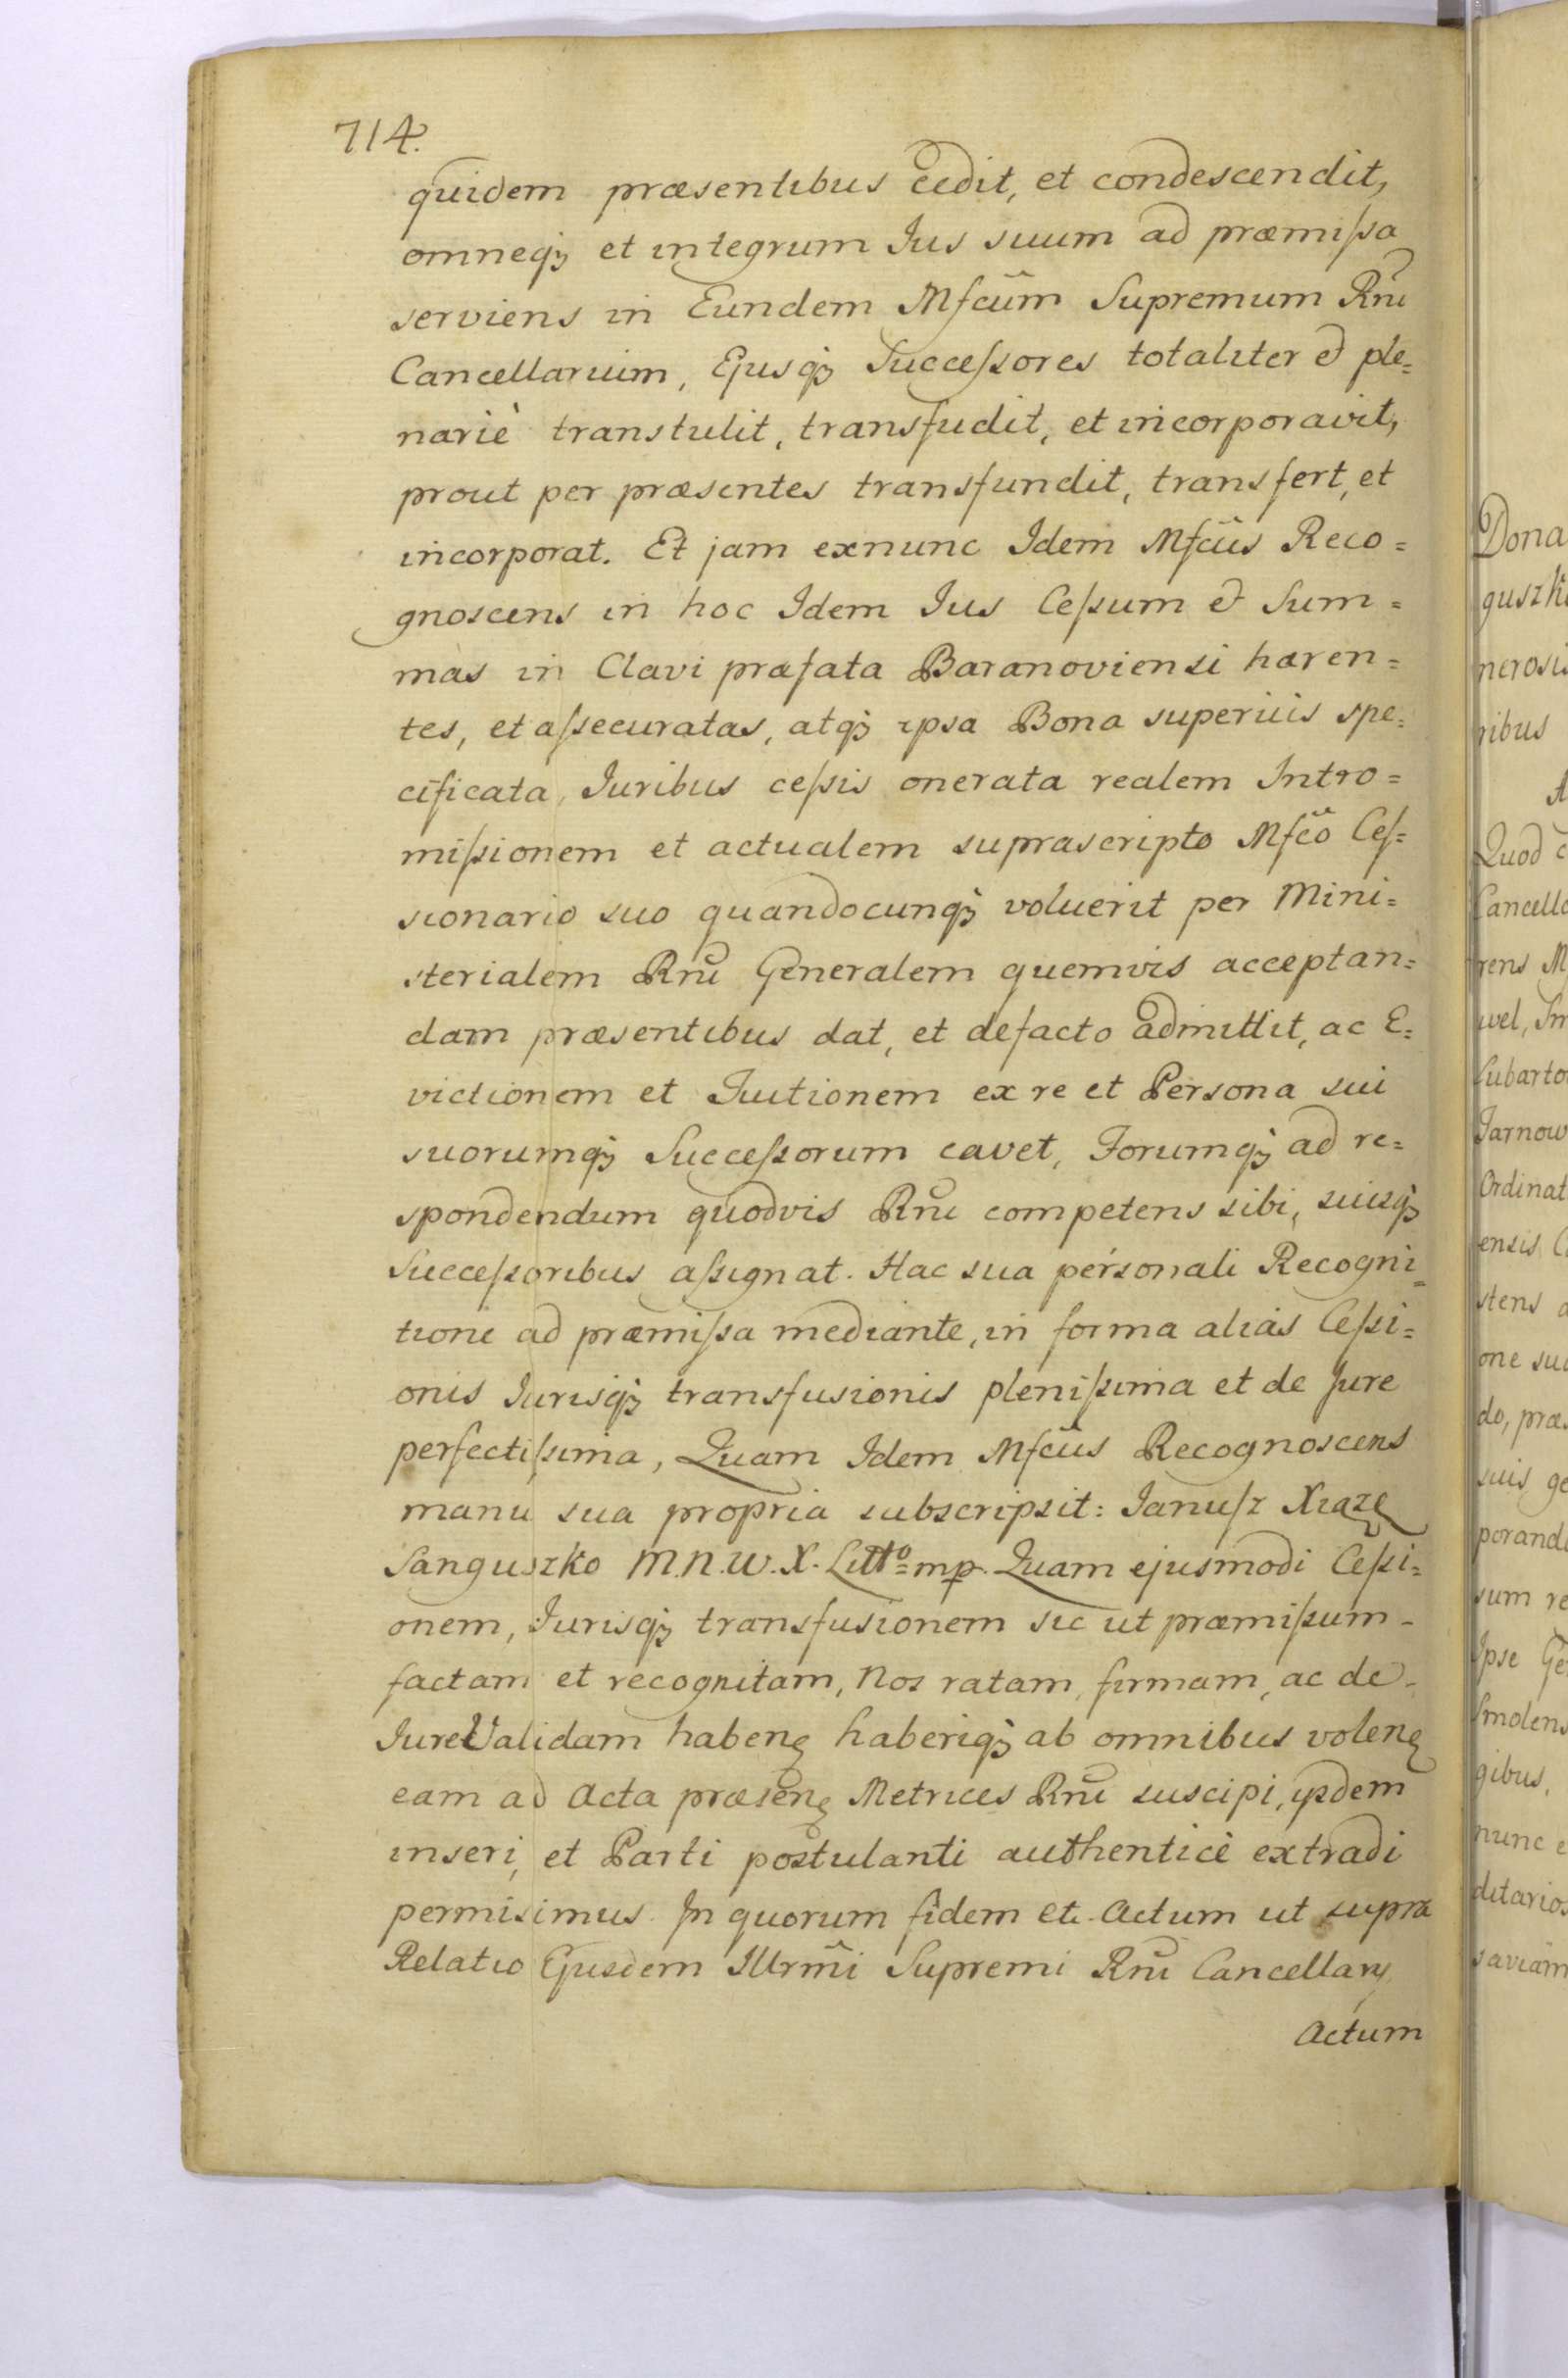 714.
quidem præsentibus cedit, et condescendit,
omneqȝ et integrum Jus suum ad præmiſsa
serviens in Eundem Mfcum Supremum Rnĩ
Cancellarium, Ejusqȝ Succeſsores totaliter & ple=
nariè transtulit, transfudit, et incorporavit,
prout per præsentes transfundit, transfert, et
incorporat. Et jam exnunc Idem Mfcũs Reco=
gnoscens in hoc Idem Jus Ceſsum & Sum=
mas in Clavi præfata Baranoviensi hæren=
tes, et aſsecuratas, atqȝ ipsa Bona superiùs spe=
cificata, Juribus ceſsis onerata realem Intro=
miſsionem et actualem suprascripto Mfcõ Ceſ=
sionario suo quandocunqȝ voluerit per Mini=
sterialem Rnĩ Generalem quemvis acceptan=
dam præsentibus dat, et defacto admittit, ac E=
victionem et Tuitionem ex re et Persona sui
suorumqȝ Succeſsorum cavet, Forumqȝ ad re=
spondendum quodvis Rnĩ competens sibi, suisqȝ
Succeſsoribus aſsignat. Hac sua personali Recogni=
tione ad præmiſsa mediante, in forma aliàs Ceſsi=
onis Jurisqȝ transfusionis pleniſsima et de Jure
perfectiſsima, Quam Idem Mfcũs Recognoscens
manu sua propria subscripsit: Januſz Xiązę
Sanguszko M.N.W.X.Litto= mp. Quam ejusmodi Ceſsi=
onem, Jurisqȝ transfusionem sic ut præmiſsum-
factam et recognitam, Nos ratam, firmam, ac de-
Jure Validam habenȩ haberiqȝ ab omnibus volenȩ
eam ad Acta præsenȩ Metrices Rnĩ suscipi, ijsdem
inseri, et Parti postulanti authenticè extradi
permisimus. In quorum fidem etc. Actum ut supra
Relatio Ejusdem Illrmĩ Supremi Rnĩ Cancellarij
Actum
Dona
guszk
nerosi
ribus
A
Quod c
Cancella
rens M
wel, Sm
Lubarto
Tarnow
Ordinat
ensis C
stens a
one su
do, præ
suis ge
porand
sum re
Ipse Ge
Smolens
gibus,
nunc e
ditarios
saviam